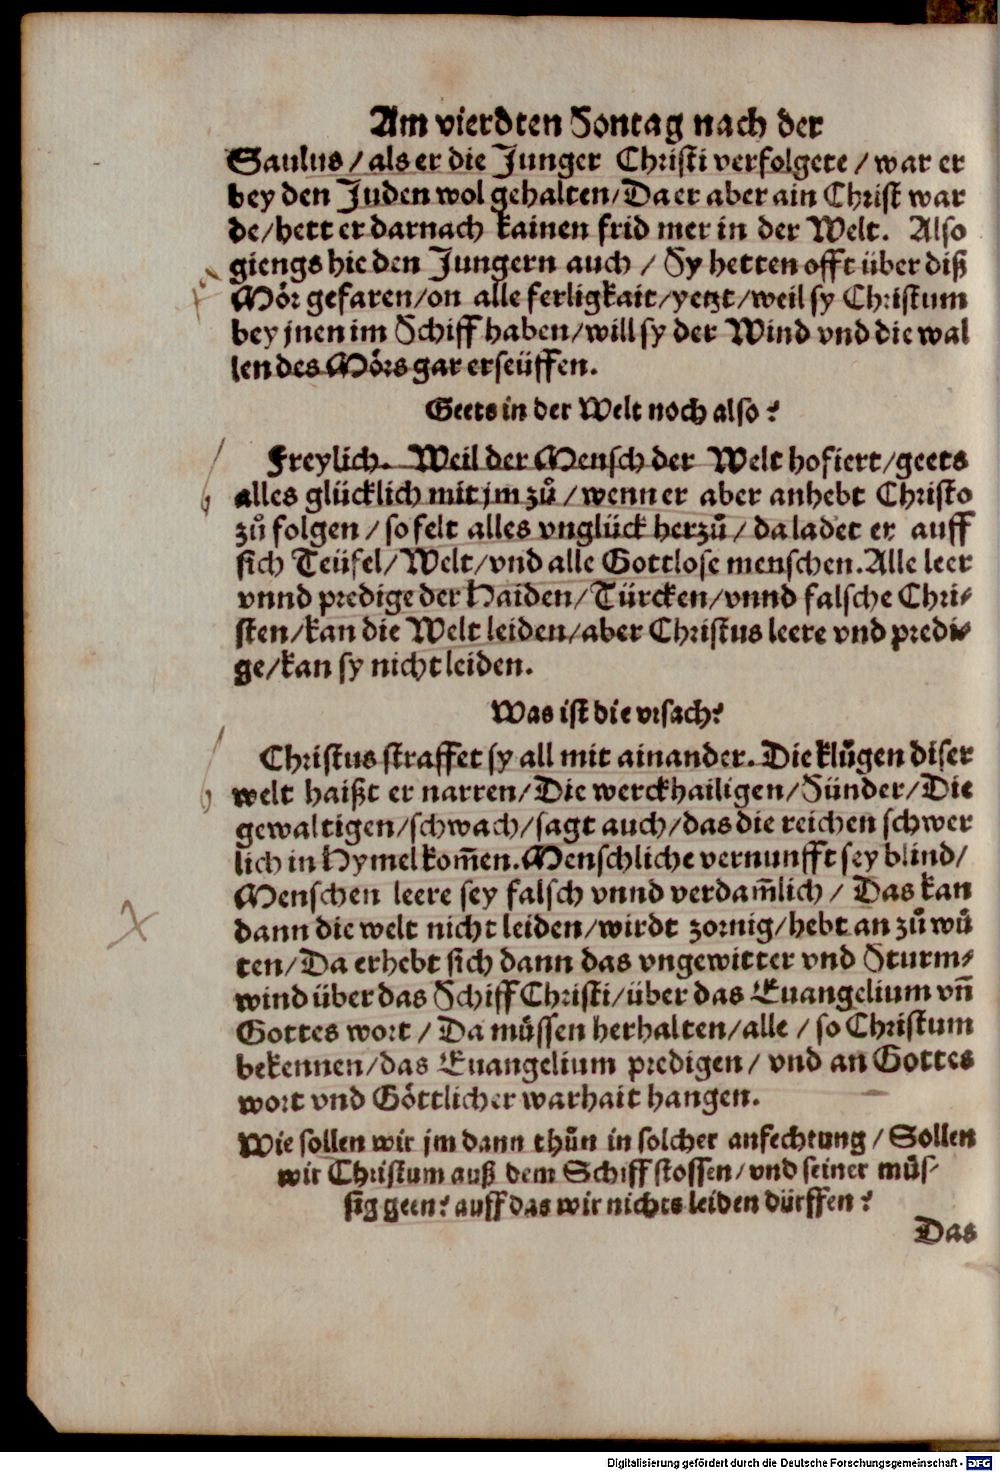 Am vierdten Sontag nach der
Saulus / als er die Junger Christi verfolgete / war er
bey den Juden wol gehalten / Da er aber ain Christ war
de / hett er darnach kainen frid mer in der Welt. Also
giengs hie den Jungern auch / Sy hetten offt über diß
Mör gefaren / on alle ferligkait / yetzt / weil sy Christum
bey jnen im Schiff haben / will sy der Wind vnd die wal
len des Mörs gar erseüffen.
Geets in der Welt noch also?
Freylich. Weil der Mensch der Welt hofiert / geets
alles glücklich mit jm zů / wenn er aber anhebt Christo
zů folgen / so felt alles vnglück herzů / da ladet er auff
sich Teüfel / Welt / vnd alle Gottlose menschen. Alle leer
vnnd predige der Haiden / Türcken / vnnd falsche Chri⸗
sten / kan die Welt leiden / aber Christus leere vnd predi⸗
ge / kan sy nicht leiden.
Was ist die vrsach?
Christus straffet sy all mit ainander. Die klůgen diser
welt haißt er narren / Die werckhailigen / Sünder / Die
gewaltigen / schwach / sagt auch / das die reichen schwer
lich in Hymel kom̃en. Menschliche vernunfft sey blind /
Menschen leere sey falsch vnnd verdam̃lich / Das kan
dann die welt nicht leiden / wirdt zornig / hebt an zů wů
ten / Da erhebt sich dann das vngewitter vnd Sturm⸗
wind über das Schiff Christi / über das Euangelium vñ
Gottes wort / Da müssen herhalten / alle / so Christum
bekennen / das Euangelium predigen / vnd an Gottes
wort vnd Göttlicher warhait hangen.
Wie sollen wir jm dann thůn in solcher anfechtung / Sollen
wir Christum auß dem Schiff stossen / vnd seiner můs⸗
sig geen? auff das wir nichts leiden dürffen?
Das
Digitalisierung gefördert durch die Deutsche Forschungsgemeinschaft - DFG